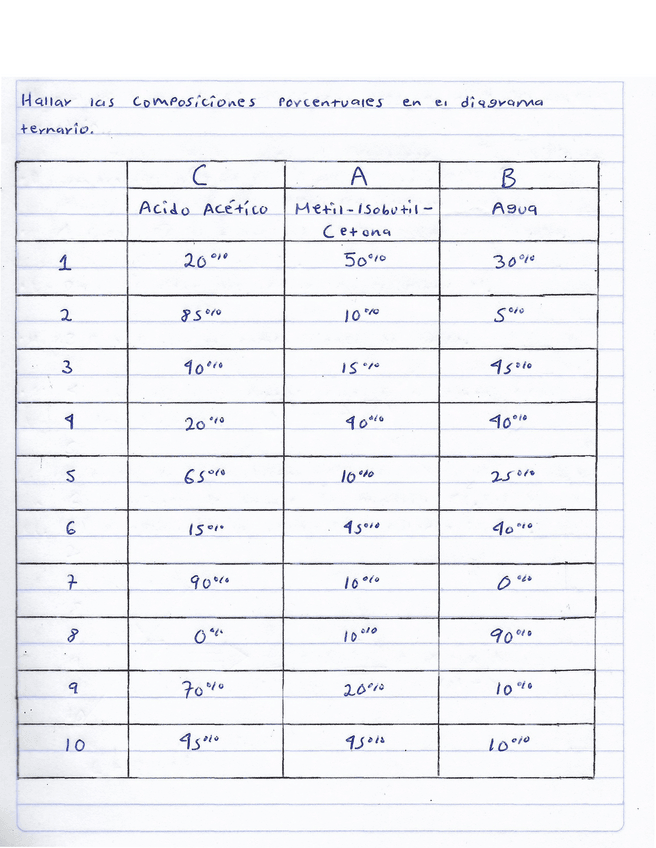 Hallar las composiciones porcentuales en el diagrama
ternario.
C A B
Acido Acético Metil-Isobutil- Agua
Cetona
1 20% 50% 30%
2 85% 10% 5%
3 40% 15% 45%
4 20% 40% 40%
5 65% 10% 25%
6 15% 45% 40%
7 90% 10% 0%
8 0% 10% 90%
9 70% 20% 10%
10 45% 45% 10%